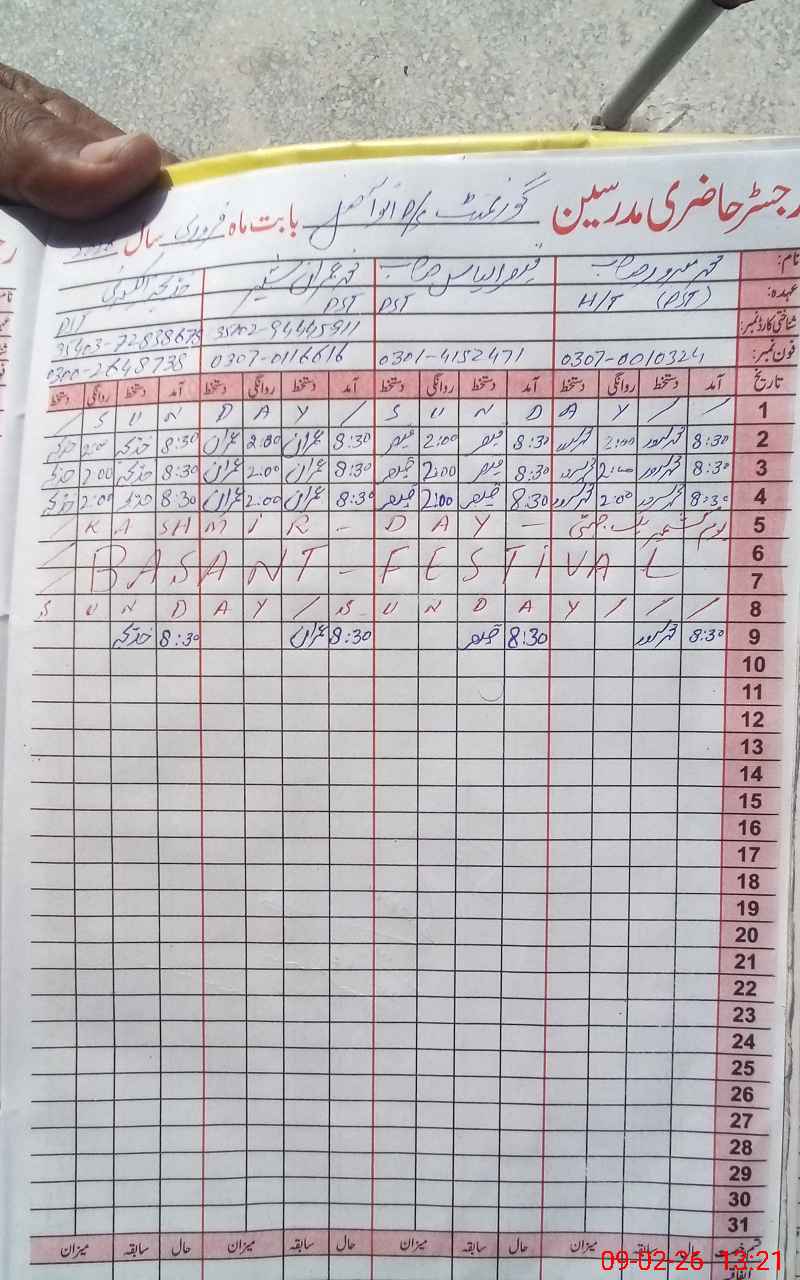 رجسٹر حاضری مدرسین گورنمنٹ P/S بابت ماہ فروری سال
نام: محمد سرور صاحب قیصر الیاس صاحب محمد عمران شبیر خدیجہ
عہدہ: H/T (PST) PST PST PST
شناختی کارڈ نمبر: 35202-94445911 35403-72838678
فون نمبر: 0307-0010324 0301-4152471 0307-0116616 0300-2648738
تاریخ آمد دستخط روانگی دستخط آمد دستخط روانگی دستخط آمد دستخط روانگی دستخط آمد دستخط روانگی دستخط
1 / S U N D A Y / S U N D A Y / /
2 8:30 محمد سرور 2:00 محمد سرور 8:30 قیصر 2:00 قیصر 8:30 عمران 2:00 عمران 8:30 خدیجہ 2:00 خدیجہ
3 8:30 محمد سرور 2:00 محمد سرور 8:30 قیصر 2:00 قیصر 8:30 عمران 2:00 عمران 8:30 خدیجہ 2:00 خدیجہ
4 8:30 محمد سرور 2:00 محمد سرور 8:30 قیصر 2:00 قیصر 8:30 عمران 2:00 عمران 8:30 خدیجہ 2:00 خدیجہ
5 / KASHMIR - DAY - یوم کشمیر
6
7 BASANT - FESTIVAL
8 S U N D A Y / S U N D A Y / / /
9 8:30 محمد سرور 8:30 قیصر 8:30 عمران 8:30 خدیجہ
10
11
12
13
14
15
16
17
18
19
20
21
22
23
24
25
26
27
28
29
30
31
حال سابقہ میزان حال سابقہ میزان حال سابقہ میزان حال سابقہ میزان
09-02-26 13:21